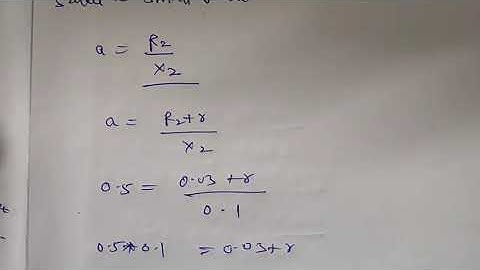 a = R2/X2
a = R2+r/X2
0.5 = 0.03+r/0.1
0.5*0.1 = 0.03+r